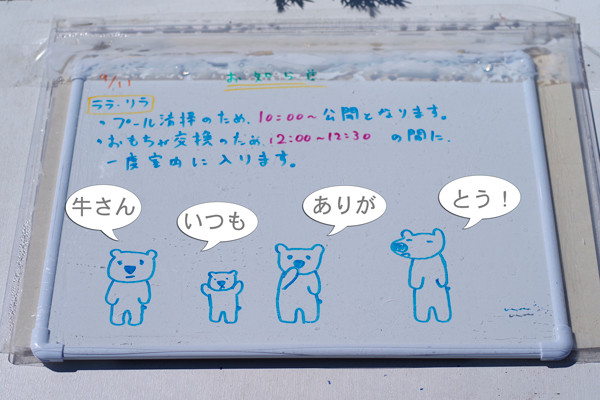 9/11
お知らせ
ララ・リラ
・プール清掃のため、10:00～公開となります。
・おもちゃ交換のため、12:00～12:30 の間に、
一度室内に入ります。
牛さん
いつも
ありが
とう！